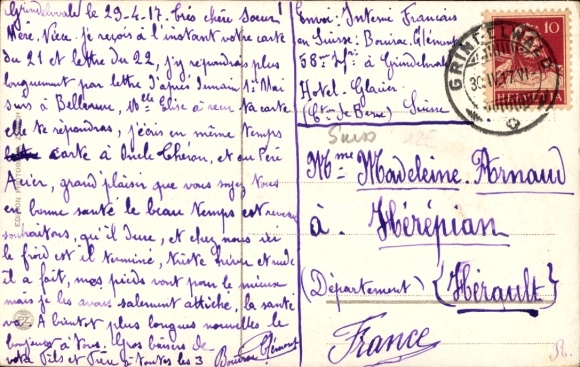 Grindelwald le 29.4.17. très chère Sœur
Mère, Nièce je reçois à l'instant votre carte
du 21 et lettre du 22, j'y répondrai plus
longuement par lettre d'après demain 1er Mai
suis à Bellevue, Mlle Élise a reçu ta carte
elle te répondras, j'écris en même temps
carte à Oncle Chéron, et au Père
grand plaisir que vous soyez tous
en bonne santé le beau temps est revenu
souhaitons, qu'il dure, et chez nous ici
le froid est il terminé, triste hiver et rude
il a fait, mes pieds vont pour le mieux
mais je les avais salement la santé
va. A bientôt plus longues nouvelles le
bonjour à tous. Gros baisers de
votre Fils et Frère à toutes les 3 Bouirac Clément
Envoi: Interné Français
en Suisse: Bouirac Clément
58e Inf à Grindelwald
Hotel Glacier
(Cton de Berne) Suisse
HELVETIA
10
GRINDELWALD
30.IV.17.VI
Suisse
Mme Madeleine Arnaud
à Hérépian
(Département) {Hérault}
France